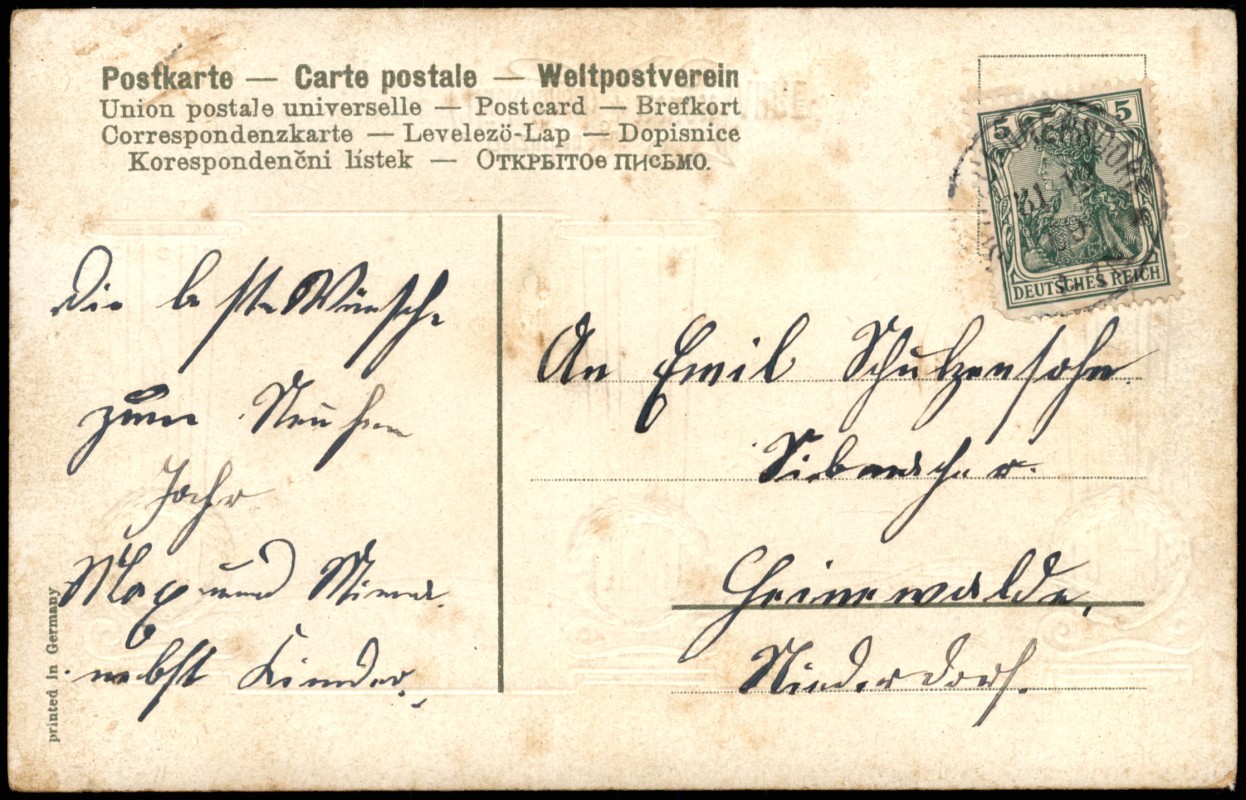 Postkarte — Carte postale — Weltpostverein
Union postale universelle — Postcard — Brefkort
Correspondenzkarte — Levelezö-Lap — Dopisnice
Korespondenčni lístek — Открытое письмо.
5 5
DEUTSCHES REICH
Die beste Wünsche
zum
Jahr
Max und Minna
nebst Kinder
An Emil
Heinewalde,
Niederdorf.
printed in Germany